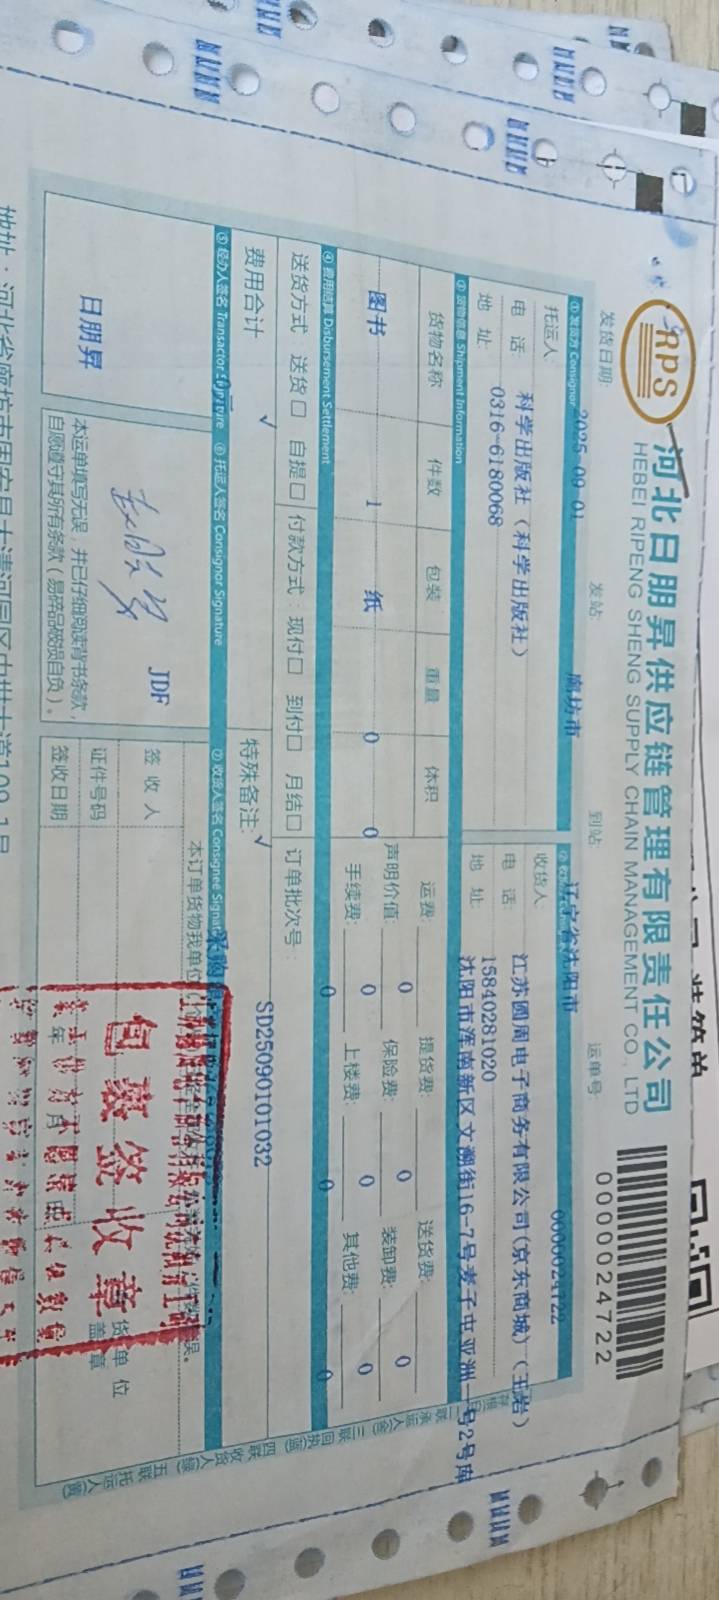 RPS
河北日朋昇供应链管理有限责任公司
HEBEI RIPENG SHENG SUPPLY CHAIN MANAGEMENT CO., LTD
0000024722
发货日期: 2025-09-01
发站: 廊坊市
到站: 辽宁省沈阳市
运单号: 0000024722
① 发货方 Consignor
托运人: 科学出版社（科学出版社）
电 话: 0316-6180068
地 址:
收货人: 江苏圆周电子商务有限公司(京东商城)（王岩）
电 话: 15840281020
地 址: 沈阳市浑南新区文溯街16-7号麦子屯亚洲一号2号库
③ 货物信息 Shipment Information
货物名称 件数 包装 重量 体积
图书 1 纸 0 0
运费: 0 提货费: 0 送货费: 0
声明价值: 0 保险费: 0 装卸费: 0
手续费: 0 上楼费: 0 其他费: 0
④ 费用结算 Disbursement Settlement
送货方式: 送货□ 自提□ 付款方式: 现付□ 到付□ 月结□ 订单批次号:
√ √
费用合计
特殊备注: SD25090101032
⑤ 经办人签名 Transactor Signature ⑥ 托运人签名 Consignor Signature ⑦ 收货人签名 Consignee Signat
日朋昇
JDF
本运单填写无误，并已仔细阅读背书条款，
自愿遵守其所有条款(易碎品破损自负)。
本订单货物我单位
签 收 人
证件号码
签收日期 年 月
货 单 位
盖 章
包裹签收章
二联承运人
三联回执
四联收货人
五联托运人
地址：河北省廊坊市固安县大清河园区中世大道109-1号